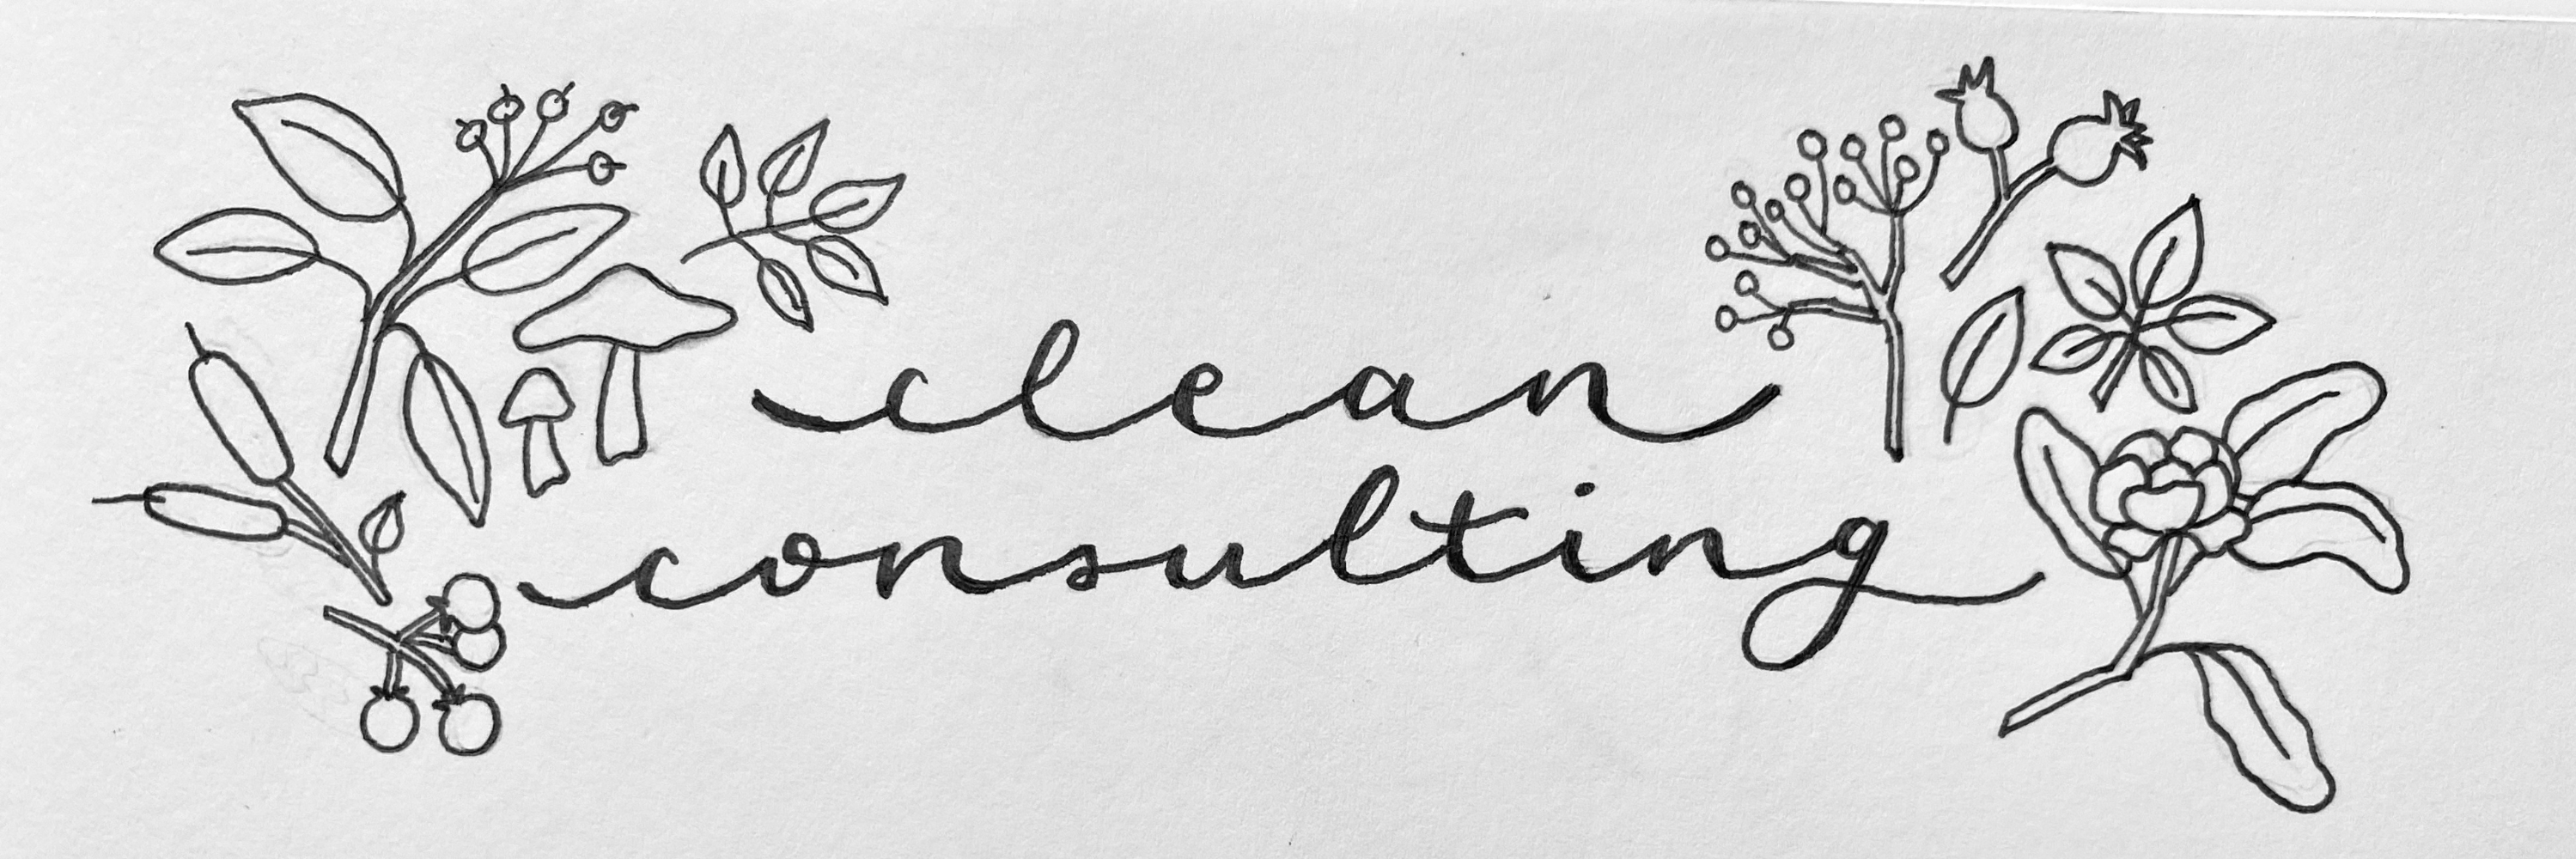 clean
consulting